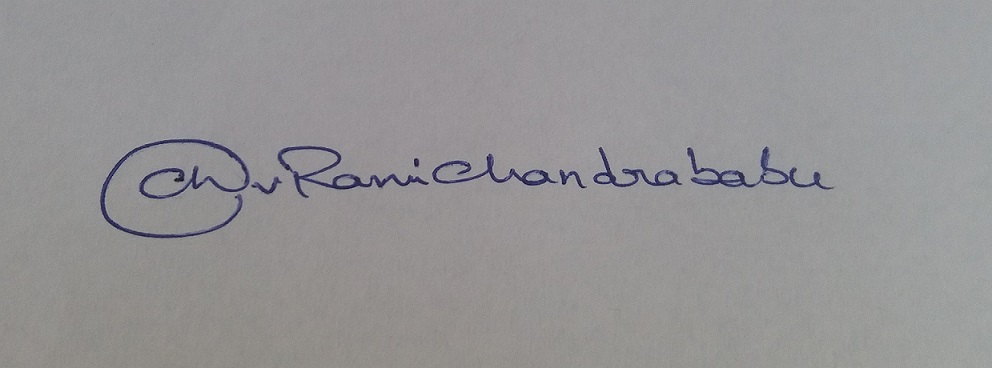 Ch.v Ramichandrababu